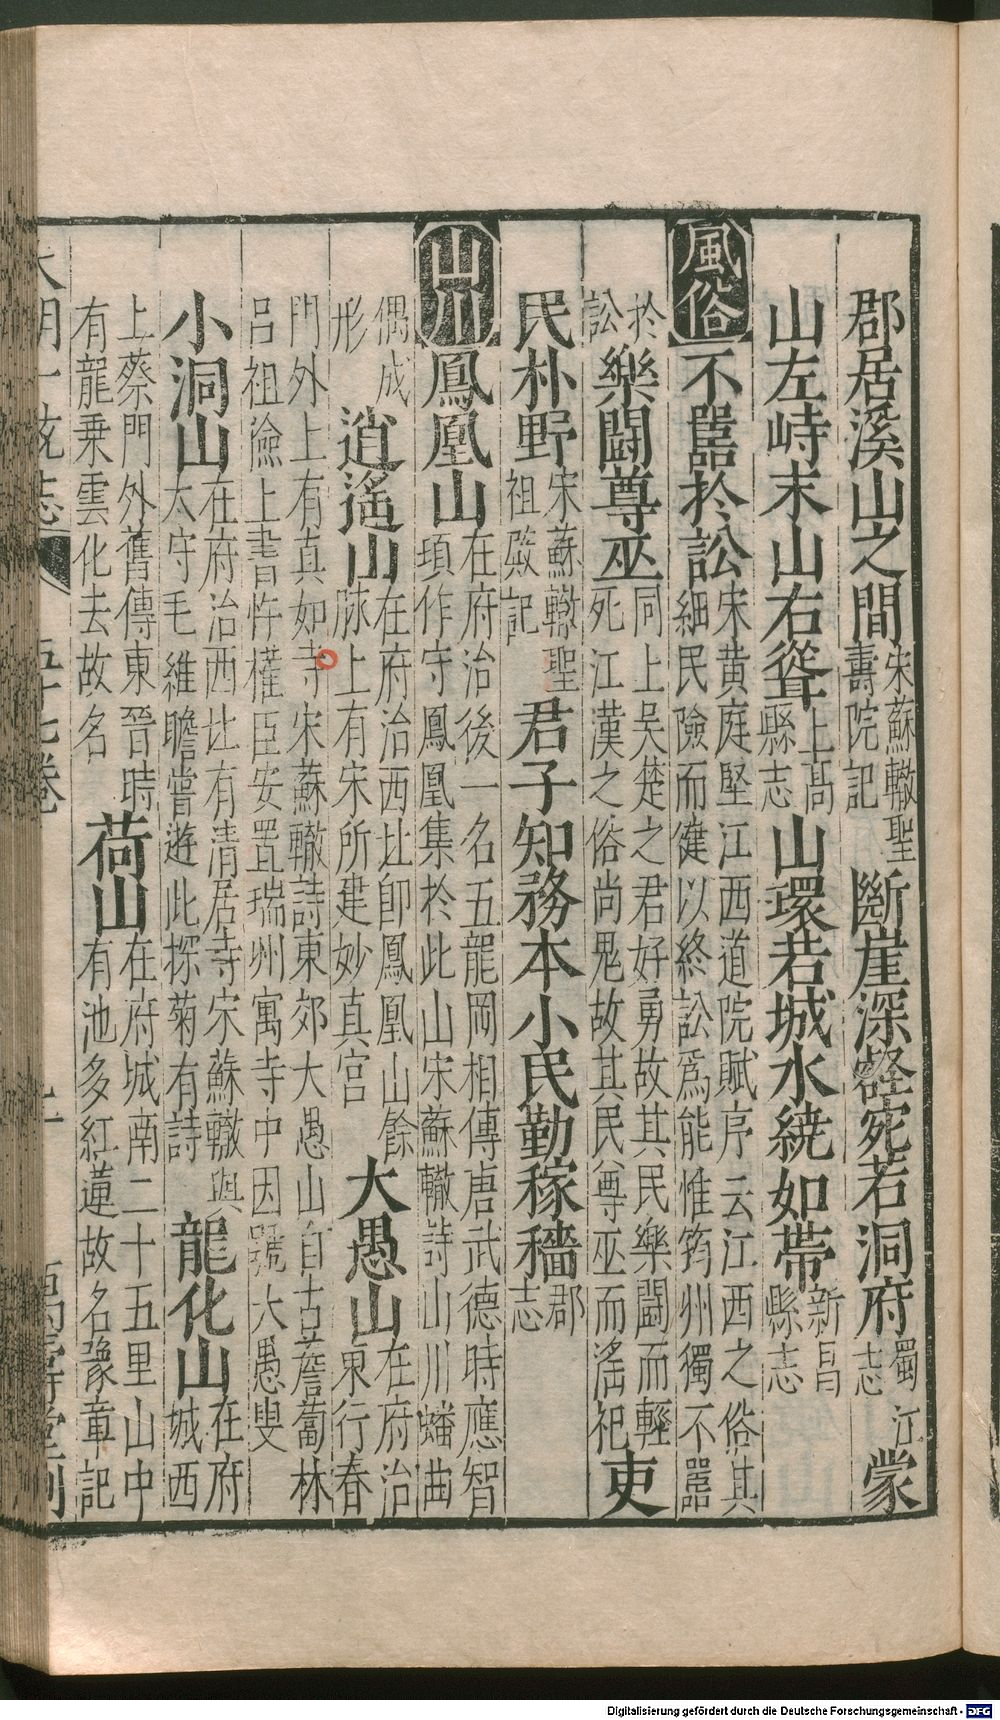 郡居溪山之間宋蘇轍聖壽院記斷崖深壑宛若洞府蜀江志蒙
山左峙末山右聳上高縣志山環若城水繞如帶新昌縣志
風俗不嚚於訟宋黄庭堅江西道院賦序云江西之俗其細民險而健以終訟爲能惟筠州獨不嚚
於訟樂鬪尊巫同上吴楚之君好勇故其民樂鬪而輕死江漢之俗尚鬼故其民尊巫而滛祀吏
民朴野宋蘇轍聖祖殿記君子知務本小民勤稼穡郡志
山川鳳凰山在府治後一名五龍岡相傳唐武德時應智頊作守鳳凰集於此山宋蘇轍詩山川蟠曲
偶成形逍遙山在府治西北卽鳳凰山餘脉上有宋所建妙真宫大愚山在府治東行春
門外上有真如寺宋蘇轍詩東郊大愚山自古薝蔔林吕祖儉上書忤權臣安置瑞州寓寺中因號大愚叟
小洞山在府治西北有清居寺宋蘇轍與太守毛維瞻嘗遊此探菊有詩龍化山在府城西
上蔡門外舊傳東晉時有龍乗雲化去故名荷山在府城南二十五里山中有池多紅蓮故名豫章記
大明一統志 五十七卷
Digitalisierung gefördert durch die Deutsche Forschungsgemeinschaft - DFG